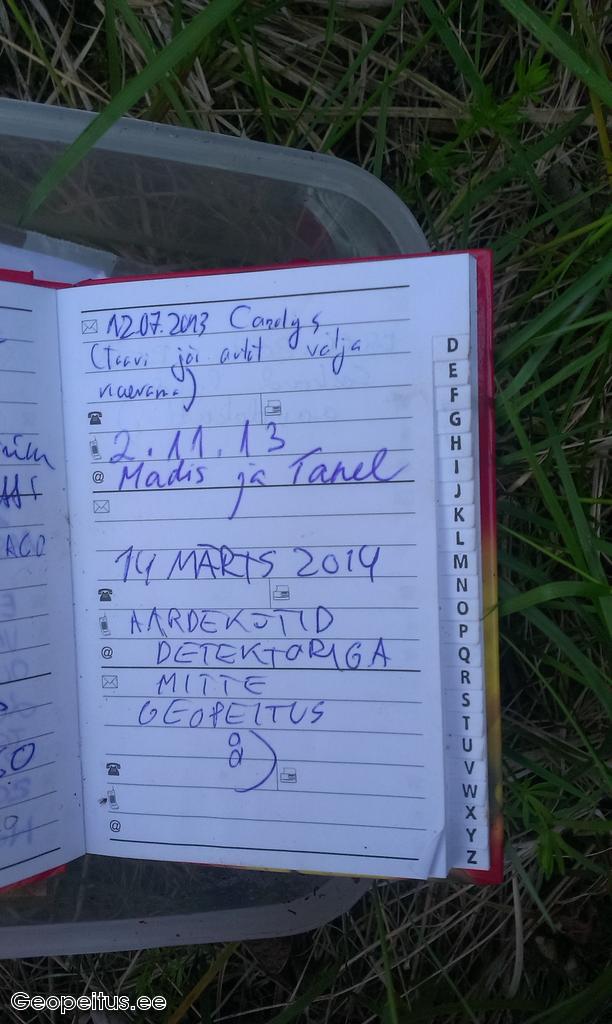 12.07.2013 Candys
(Taavi jäi autot välja
naerma)
2.11.13
Madis ja Tanel
14 MÄRTS 2014
AARDEKÜTID
DETEKTORIGA
MITTE
GEOPEITUS
:)
D
E
F
G
H
I
J
K
L
M
N
O
P
Q
R
S
T
U
V
W
X
Y
Z
Geopeitus.ee